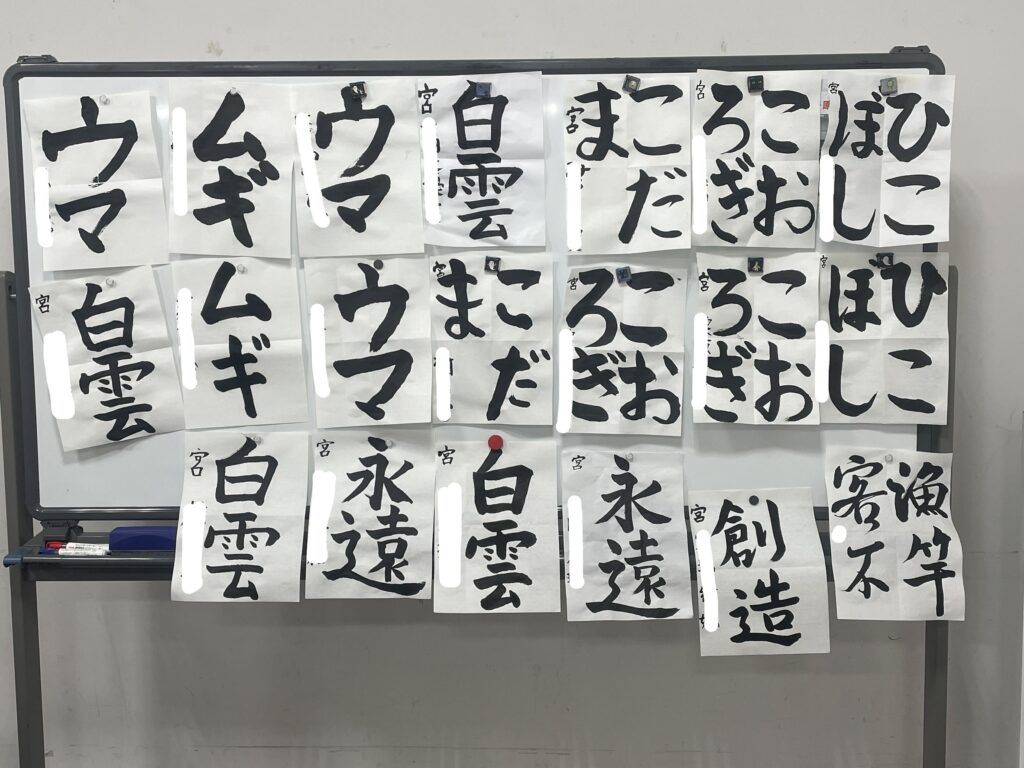 ウマ
ムギ
ウマ
白雲
宮
こだ
ま
宮
こお
ろぎ
宮
ひこ
ぼし
宮
白雲
宮
ムギ
ウマ
こだ
ま
宮
こお
ろぎ
宮
こお
ろぎ
宮
ひこ
ぼし
宮
白雲
宮
永遠
宮
白雲
宮
永遠
宮
創造
宮
漁竿
客不